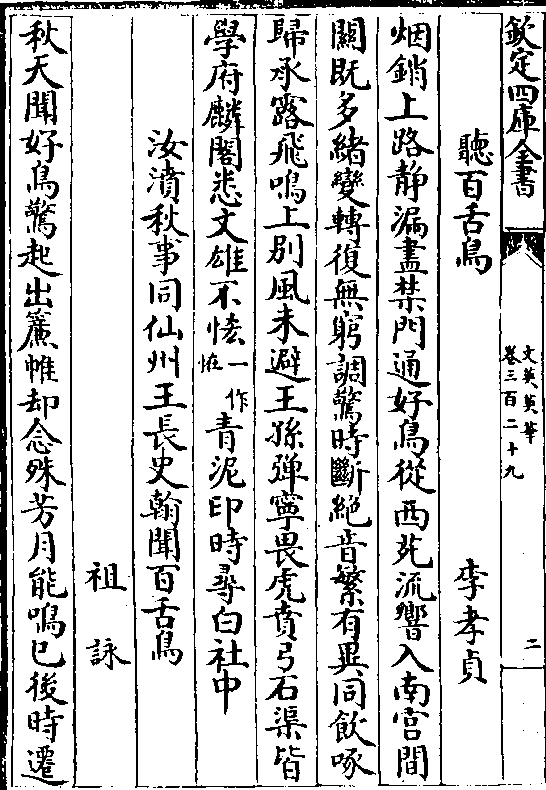 欽定四庫全書
文苑英華
卷三百二十九
二
聽百舌鳥
李孝貞
烟銷上路静漏盡禁門通好鳥從西苑流響入南宫間
關既多緒變轉復無窮調驚時斷絶音繁有異同飲啄
歸承露飛鳴上别風未避王孫弹寧畏虎賁弓石渠皆
學府麟閣悉文雄不恡一作恡青泥印時尋白社中
汝濆秋事同仙州王長史翰聞百舌鳥
祖詠
秋天聞好鳥驚起出簾帷却念殊芳月能鳴已後時遷